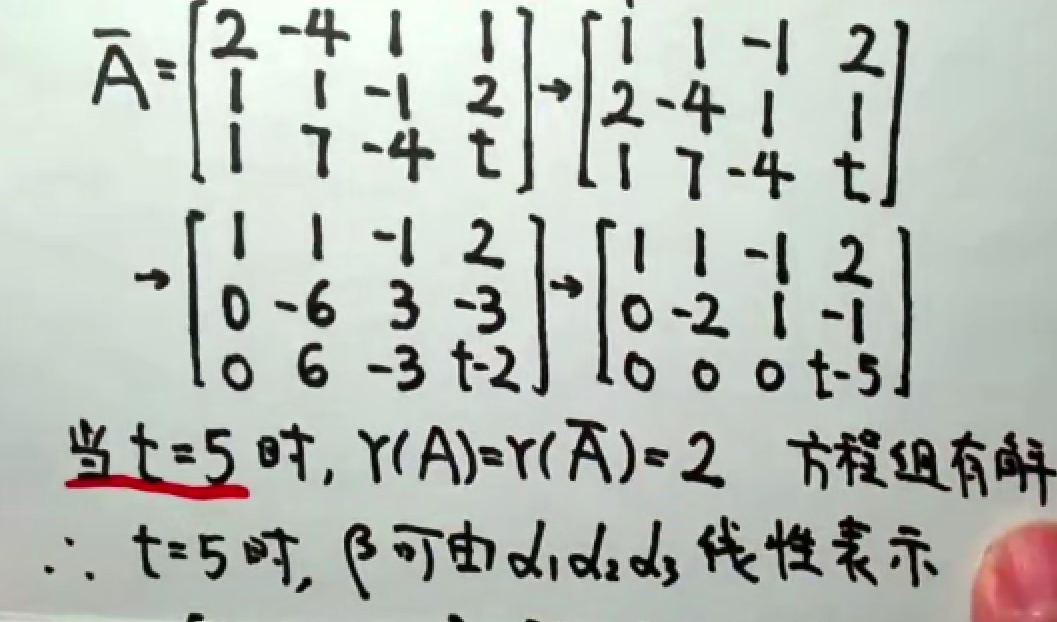 Ā = [2 -4 1 1; 1 1 -1 2; 1 7 -4 t] → [1 1 -1 2; 2 -4 1 1; 1 7 -4 t]
→ [1 1 -1 2; 0 -6 3 -3; 0 6 -3 t-2] → [1 1 -1 2; 0 -2 1 -1; 0 0 0 t-5]
当 t=5 时, r(A)=r(Ā)=2 方程组有解
∴ t=5 时, β可由α₁α₂α₃线性表示